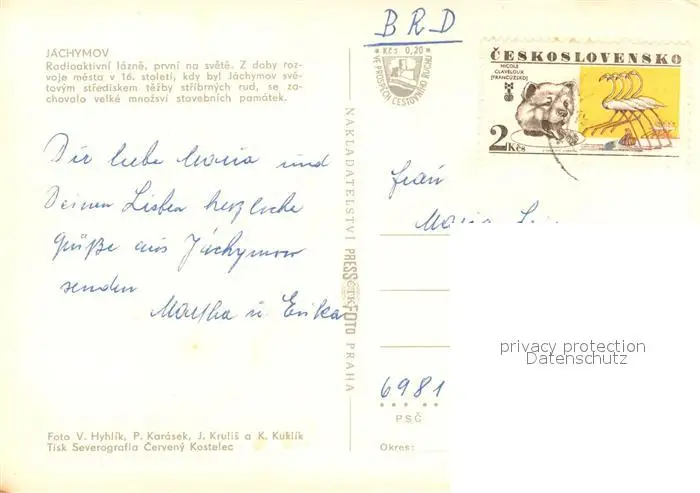 BRD
JÁCHYMOV
Radioaktivní lázně, první na světě. Z doby roz-
voje města v 16. století, kdy byl Jáchymov svě-
tovým střediskem těžby stříbrných rud, se za-
chovalo velké množsví stavebních památek.
Kčs 0,20
VE PROSPĚCH CESTOVNÍHO RUCHU
ČESKOSLOVENSKO
NICOLE
CLAVELOUX
(FRANCOUZSKO)
2 Kčs
Dir liebe Maria und
Deinen Lieben herzliche
Grüße aus Jáchymow
senden
Martha u. Erika
NAKLADATELSTVÍ PRESSFOTO PRAHA
ČTK
Frau
Maria
privacy protection
Datenschutz
6981
PSČ
Okres:
Foto V. Hyhlík, P. Karásek, J. Kruliš a K. Kuklík
Tisk Severografia Červený Kostelec